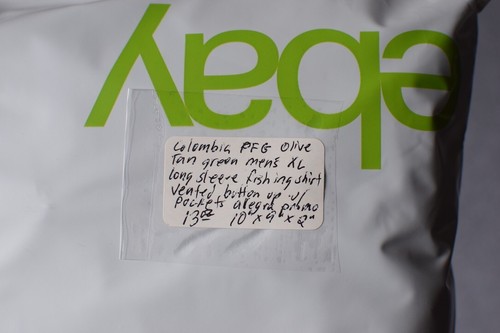 ebay
Colombia PFG Olive
Tan green men's XL
long sleeve fishing shirt
vented button up w/
pockets alegra primo
13oz 10"x9"x2"